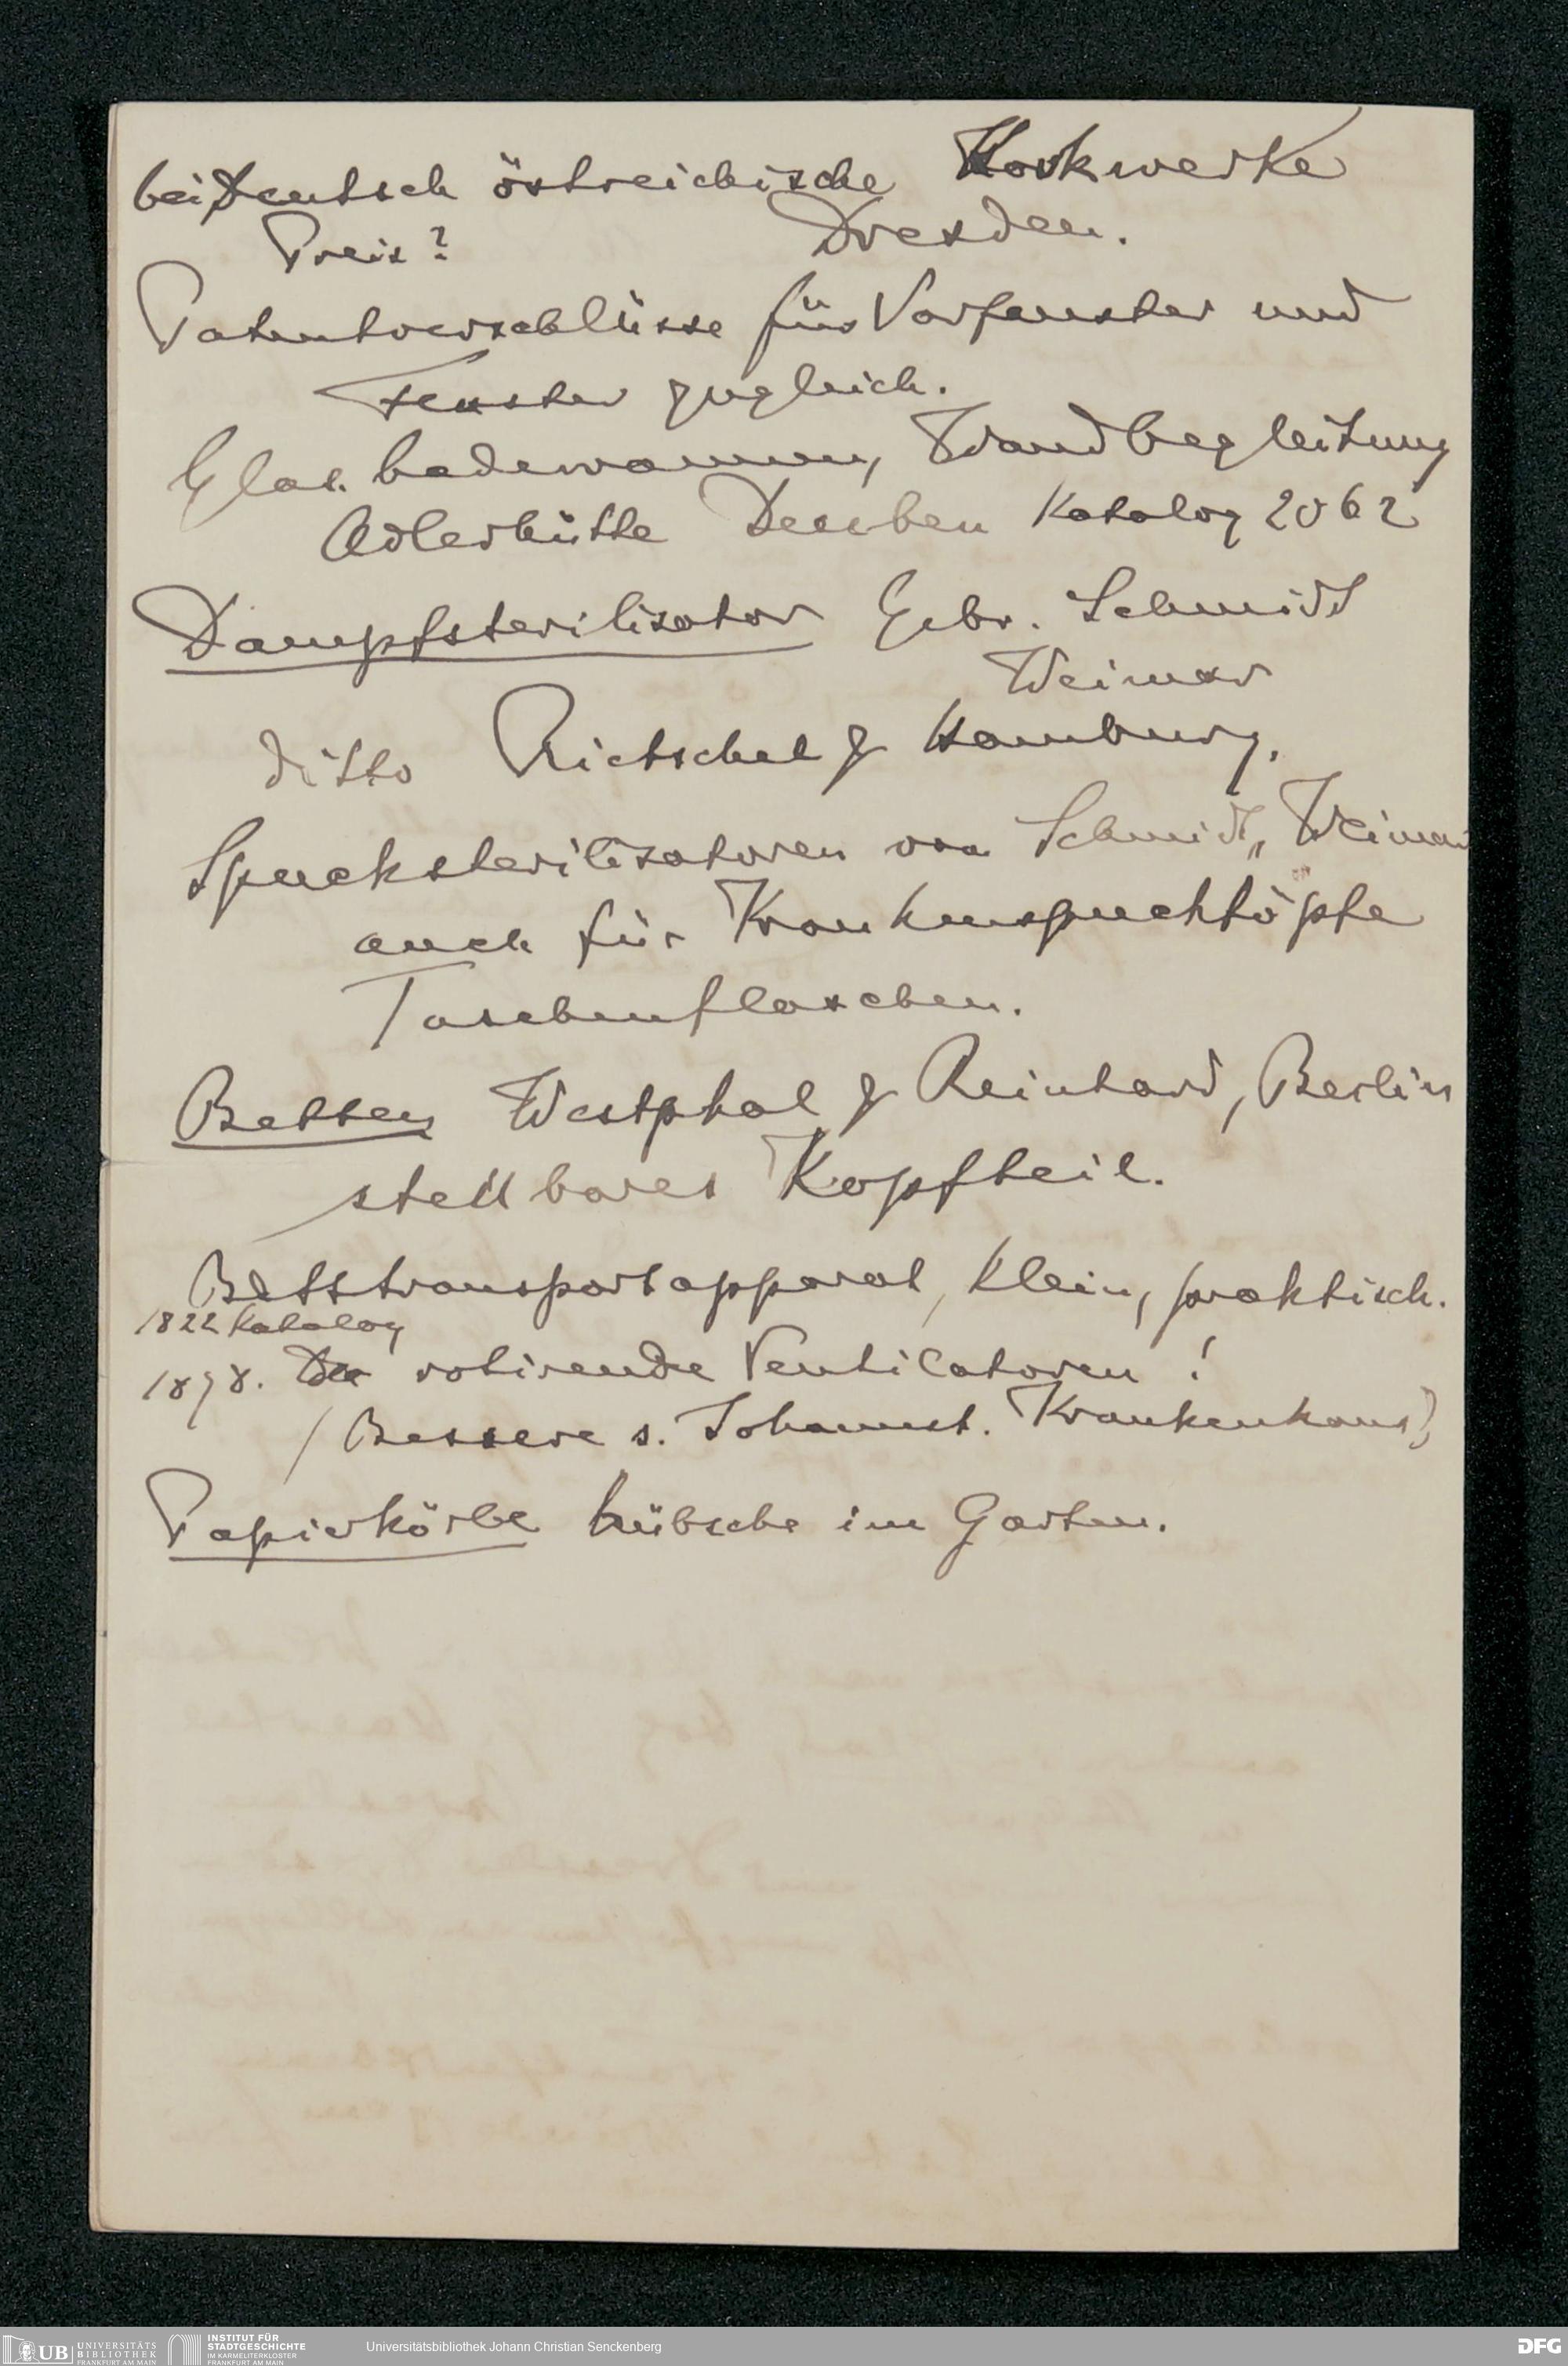 bei Deutsch östreichische Korkwerke
Preis? Dresden.
Patentverschlüsse für Vorfenster und
Fenster zugleich.
Glasbadewannen, Wandbegleitung
Adlerhütte Deuben Katalog 2062
Dampfsterilisator Gebr. Schmidt
Weimar
ditto Rietschel & Hamburg.
Spucksterilisatoren von Schmidt, Weimar
auch für Krankenspucktöpfe
Taschenflaschen.
Betten Westphal & Reinhard, Berlin
stellbares Kopfteil.
Betttransportapparat, klein, praktisch.
1822 Katalog
1878. rotirende Ventilatoren!
(Bessere s. Johannst. Krankenhaus)
Papierkörbe hübsche im Garten.
UB UNIVERSITÄTS
BIBLIOTHEK
FRANKFURT AM MAIN
INSTITUT FÜR
STADTGESCHICHTE
IM KARMELITERKLOSTER
FRANKFURT AM MAIN
Universitätsbibliothek Johann Christian Senckenberg
DFG